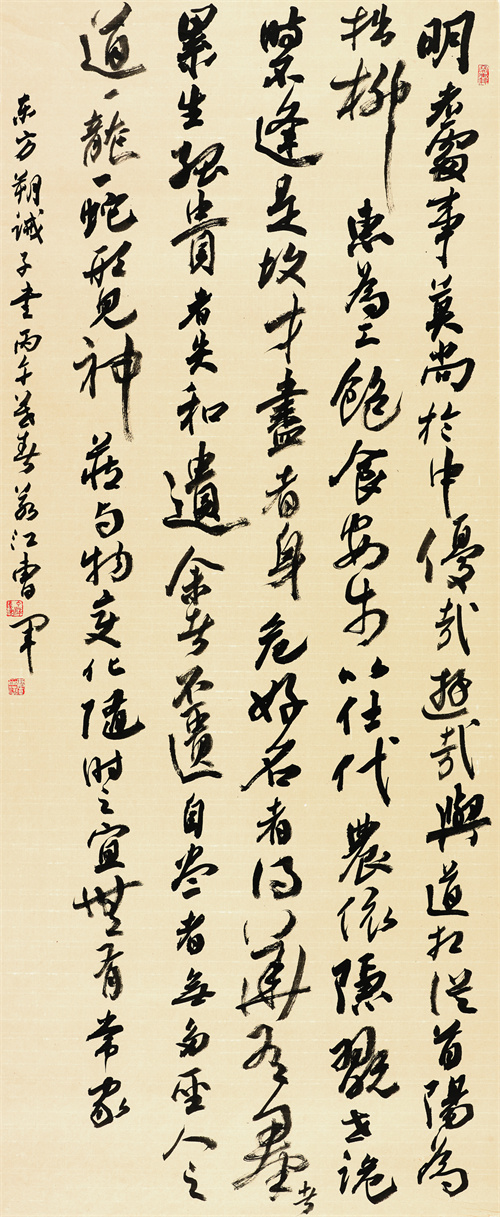 明者處事莫尚於中優哉遊哉與道相從首陽為
拙柳惠為工飽食安步以仕代農依隱翫世詭
時不逢是故才盡者身危好名者得華有羣者
累生孤貴者失和遺余者不匱自盡者無多聖人之
道一龍一蛇形見神藏与物变化隨时之宜無有常家
东方朔诫子书丙午春江曹军